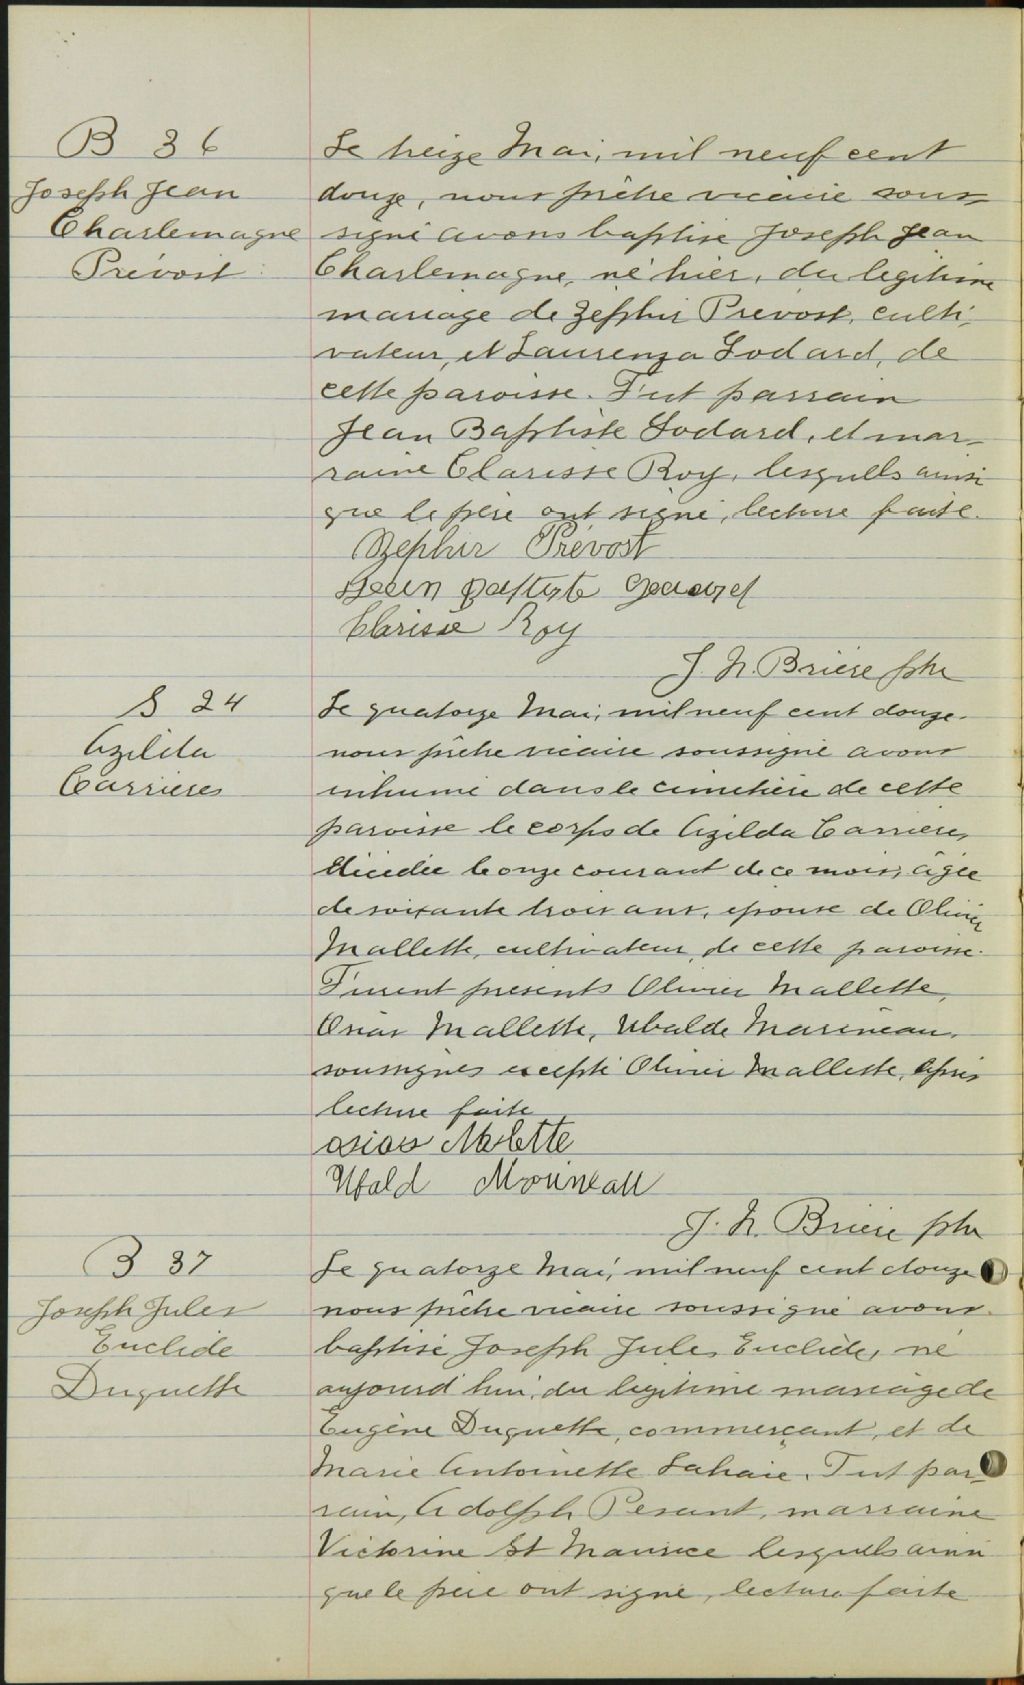 B 36
Joseph Jean
Charlemagne
Prévost
Le treize Mai, mil neuf cent
douze, nous prêtre vicaire sous-
signé avons baptisé Joseph Jean
Charlemagne, né hier, du légitime
mariage de Zéphir Prévost, culti-
vateur, et Laurenza Godard, de
cette paroisse. Fut parrain
Jean Baptiste Godard, et mar-
raine Clarisse Roy, lesquels ainsi
que le père ont signé, lecture faite.
Zephir Prévost
Jean Baptiste
Clarisse Roy
J. N. Brière ptre
S 24
Azilda
Carrières
Le quatorze Mai, mil neuf cent douze
nous prêtre vicaire soussigné avons
inhumé dans le cimetière de cette
paroisse le corps de Azilda Carrières,
décédée le onze courant de ce mois, âgée
de soixante trois ans, épouse de Olivier
Mallette, cultivateur, de cette paroisse.
Furent présents Olivier Mallette,
Osias Mallette, Ubalde Marineau,
soussignés excepté Olivier Mallette, après
lecture faite
osias Malette
Ubald
J. N. Brière ptre
B 37
Joseph Jules
Euclide
Duquette
Le quatorze Mai, mil neuf cent douze
nous prêtre vicaire soussigné avons
baptisé Joseph Jules Euclide, né
aujourd'hui, du légitime mariage de
Eugène Duquette, commerçant, et de
Marie Antoinette Lahaie. Fut par-
rain, Adolph Pesant, marraine
Victorine St Maurice lesquels ainsi
que le père ont signé, lecture faite